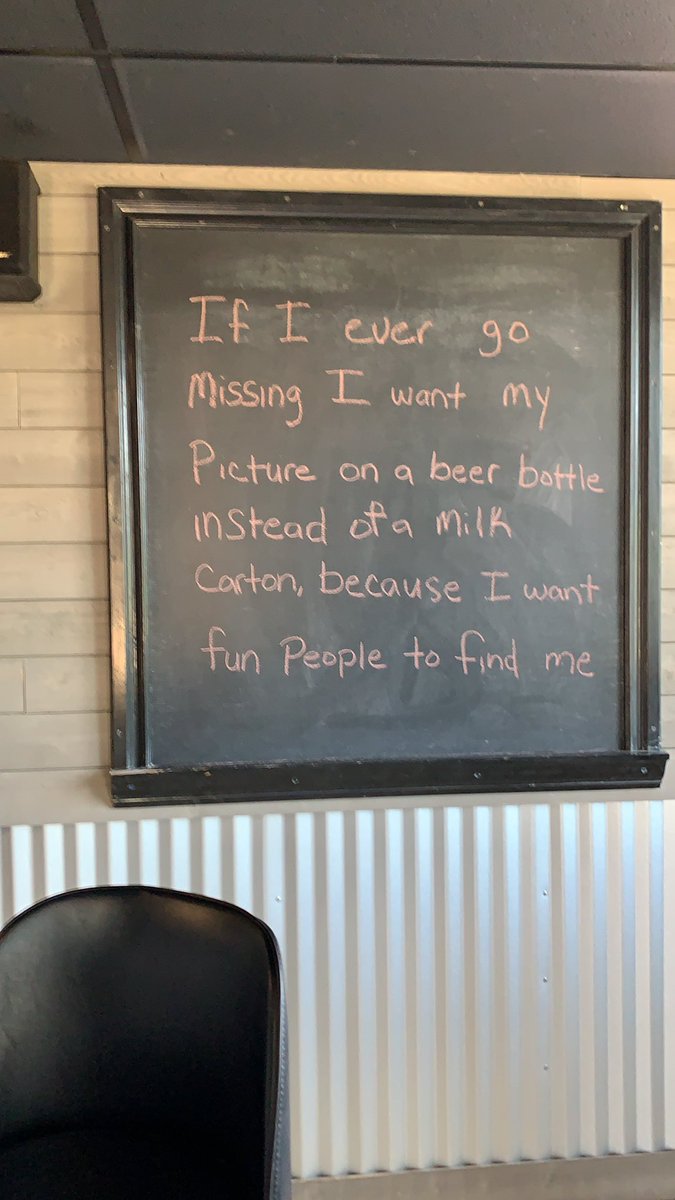 If I ever go
Missing I want my
Picture on a beer bottle
instead of a milk
Carton, because I want
fun People to find me